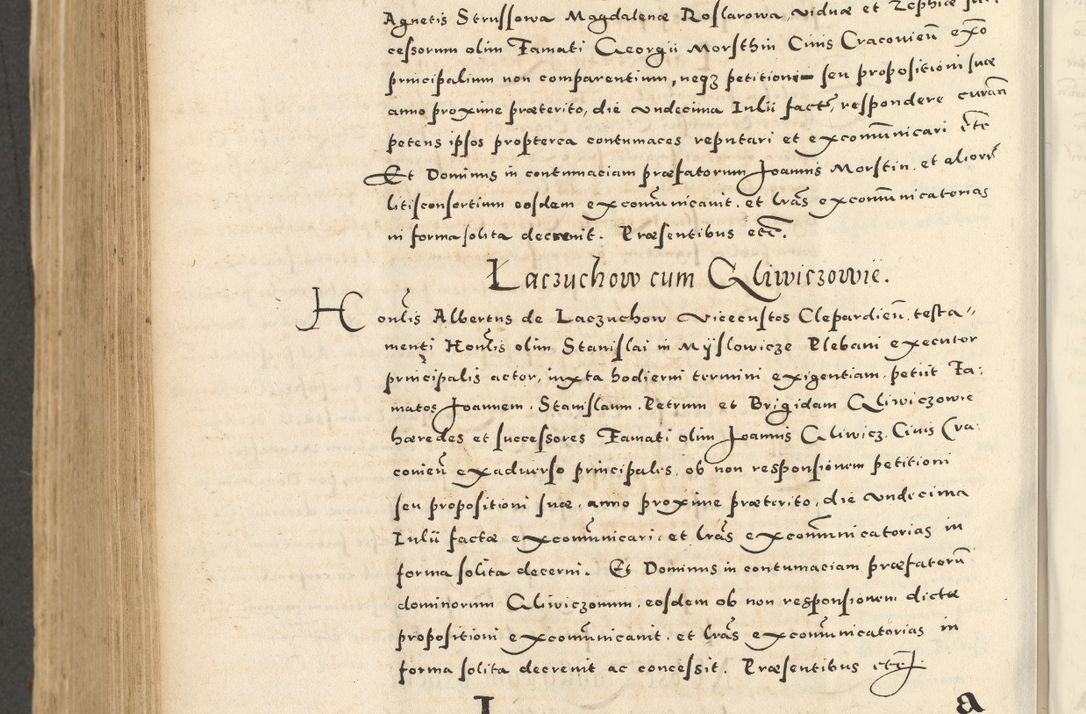 Agnetis Strussowa Magdalenæ Roslarowa, viduæ et Zophiæ
cessorum olim Famati Georgii Morsthin Civis Cracovien̄ ex̄o
principalium non comparentium, neqz petitioni seu propositioni suæ
anno proxime præterito, die undecima Iulii factæ, respondere curan̄
petens ipsos propterea contumaces reputari et excom̄unicari et̄c
Et Dominus in contumaciam præfatorum Joannis Morstin. et alior̄
litisconsortium eosdem excom̄unicavit. et lr̄as excom̄unicatorias
in forma solita decrevit. Præsentibus et̄c.
Laczuchow cum Gliwiczowie.
Hon̄lis Albertus de Laczuchow Vicecustos Clepardien̄, testa〃
menti Hon̄lis olim Stanislai in Myslowicze Plebani executor
principalis actor, iuxta hodierni termini exigentiam, petiit Fa:
matos Joannem, Stanislaum, Petrum et Brigidam Gliwiczowie
hæredes et successores Famati olim Joannis Gliwicz, Civis Cra:
covien̄ exadverso principales, ob non responsionem petitioni
seu propositioni suæ, anno proxime præterito, die undecima
Iulii factæ excom̄unicari, et lr̄as excom̄unicatorias in
forma solita decerni. Et Dominus in contumaciam præfatorū
dominorum Gliwiczonum, eosdem ob non responsionem dictæ
propositioni excom̄unicavit, et lr̄as excom̄unicatorias in
forma solita decrevit ac concessit. Præsentibus etc̄